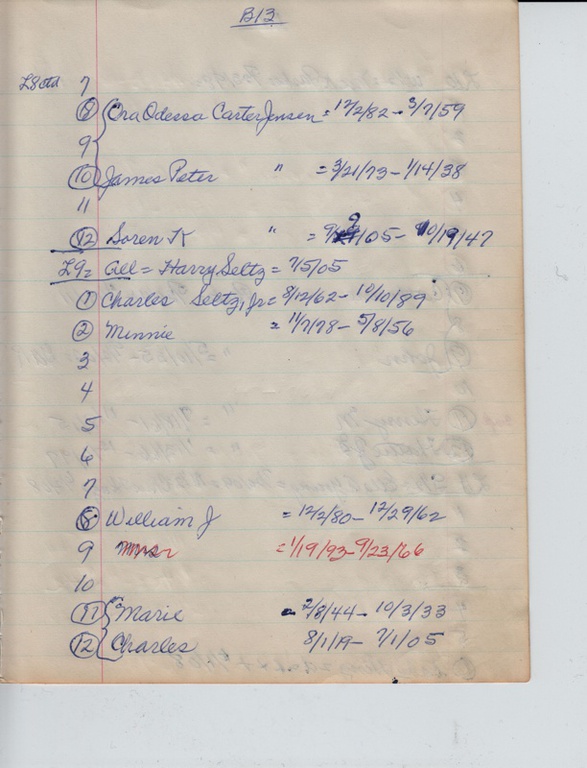 B13
L8ctd 7
8 Ora Odessa Carter Jensen = 12/2/82 - 3/7/59
9
10 James Peter " = 3/21/73 - 1/14/38
11
12 Soren K " = 9/2/05 - 10/19/47
L9= All = Harry Seltz = 7/5/05
1 Charles Seltz, Jr = 8/12/62 - 10/10/89
2 Minnie = 11/7/78 - 5/8/56
3
4
5
6
7
8 William J = 12/2/80 - 12/29/62
9 = 1/19/93 - 9/23/66
10
11 Marie - 2/8/44 - 10/3/33
12 Charles 8/1/19 - 7/1/05